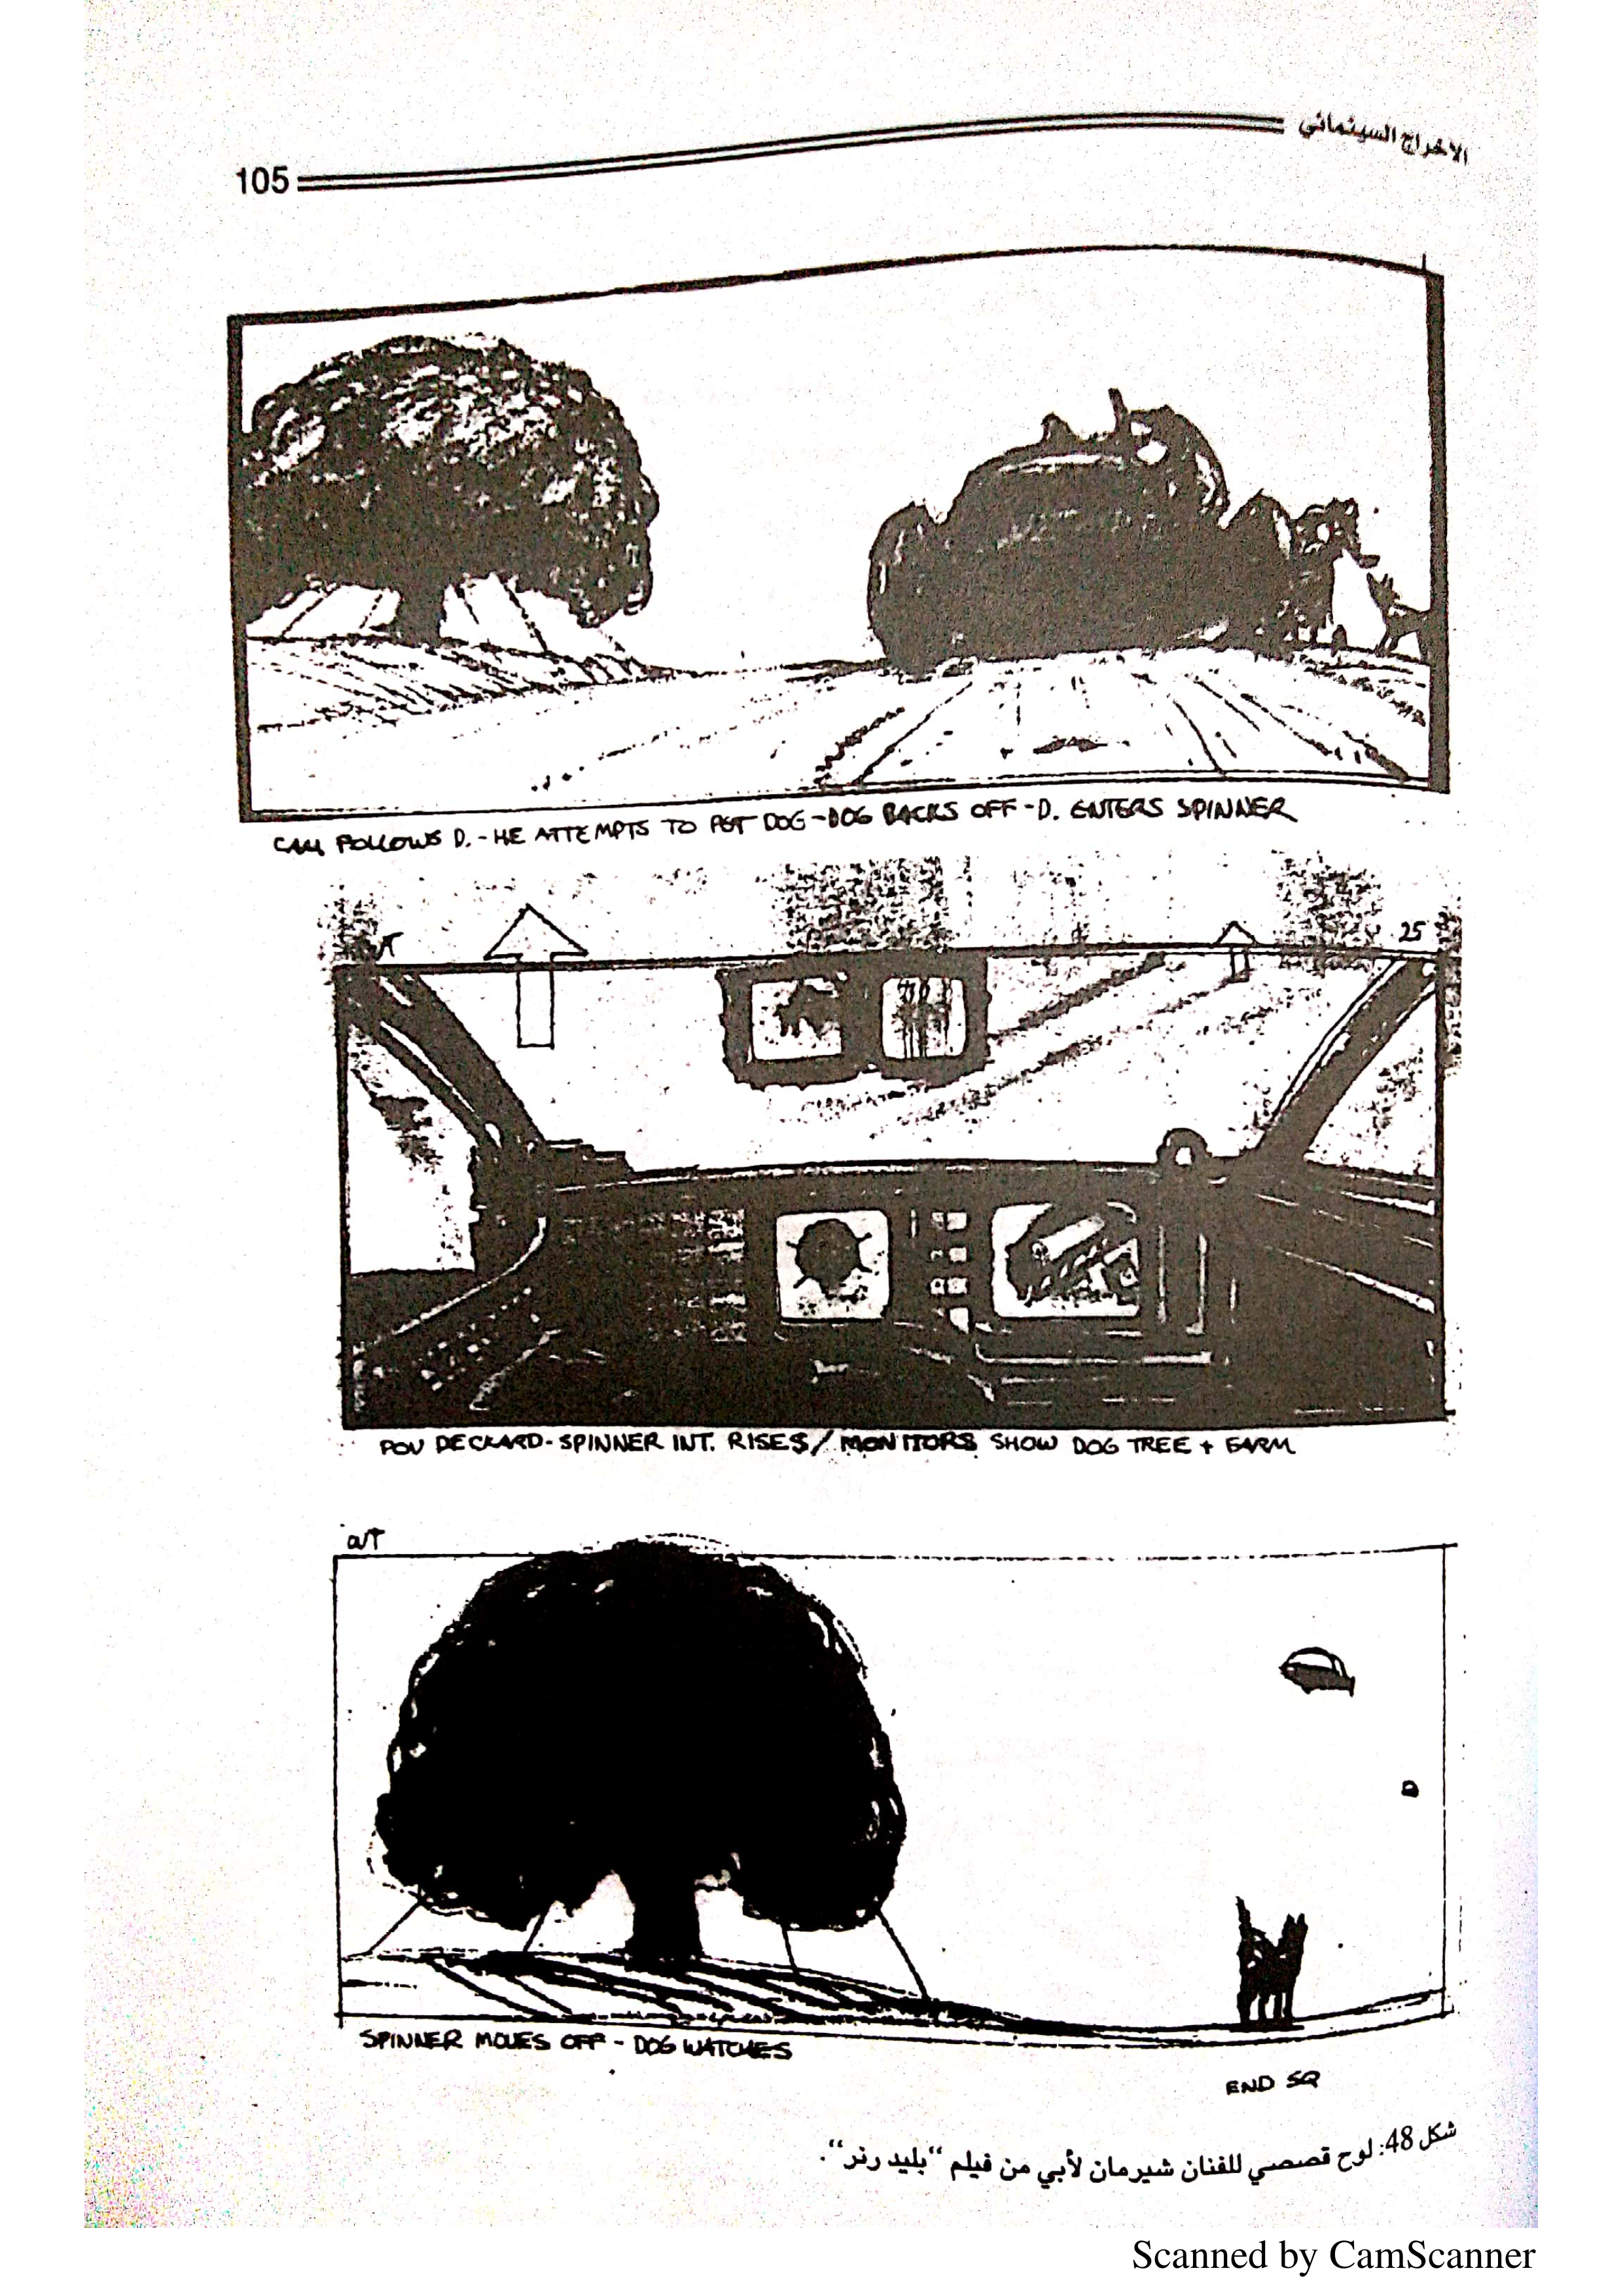 الاخراج السينمائي
105
CAM FOLLOWS D. - HE ATTEMPTS TO PET DOG - DOG BACKS OFF - D. ENTERS SPINNER
25
POV DECKARD - SPINNER INT. RISES / MONITORS SHOW DOG TREE + FARM
CUT
SPINNER MOVES OFF - DOG WATCHES
END SQ
شكل 48: لوح قصصي للفنان شيرمان لأبي من فيلم "بليد رنر".
Scanned by CamScanner